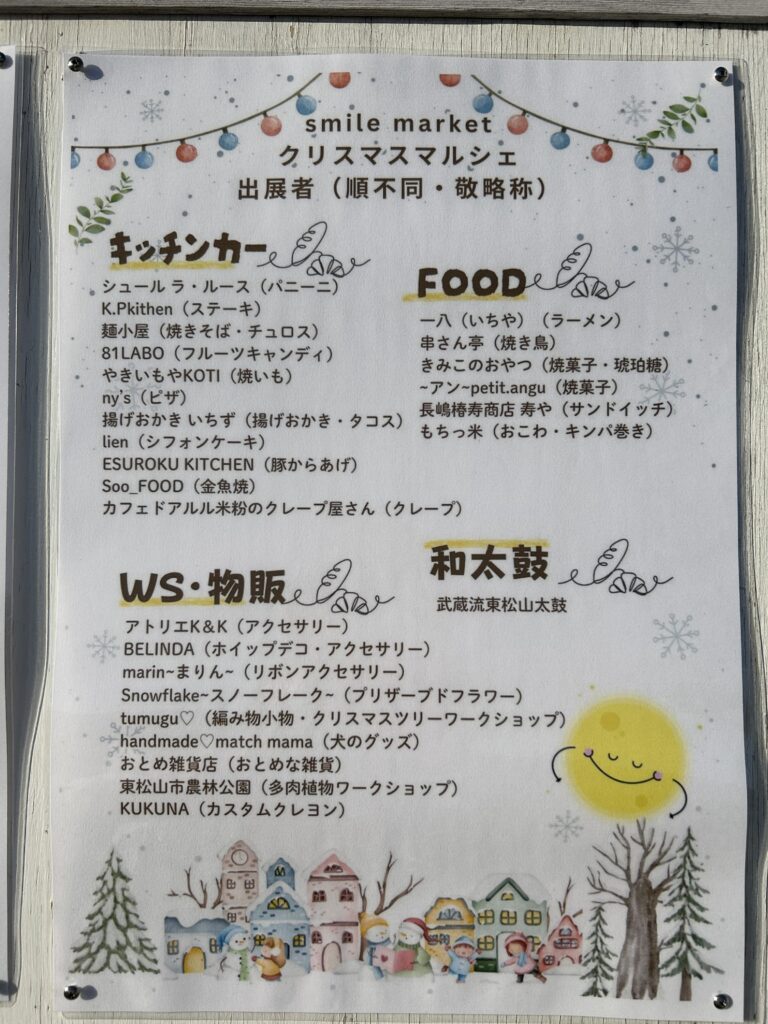 smile market
クリスマスマルシェ
出展者（順不同・敬略称）
キッチンカー
シュール ラ・ルース（パニーニ）
K.Pkithen（ステーキ）
麺小屋（焼きそば・チュロス）
81LABO（フルーツキャンディ）
やきいもやKOTI（焼いも）
ny's（ピザ）
揚げおかき いちず（揚げおかき・タコス）
lien（シフォンケーキ）
ESUROKU KITCHEN（豚からあげ）
Soo_FOOD（金魚焼）
カフェドアルル米粉のクレープ屋さん（クレープ）
FOOD
一八（いちや）（ラーメン）
串さん亭（焼き鳥）
きみこのおやつ（焼菓子・琥珀糖）
~アン~petit.angu（焼菓子）
長嶋椿寿商店 寿や（サンドイッチ）
もちっ米（おこわ・キンパ巻き）
WS・物販
アトリエK＆K（アクセサリー）
BELINDA（ホイップデコ・アクセサリー）
marin~まりん~（リボンアクセサリー）
Snowflake~スノーフレーク~（プリザーブドフラワー）
tumugu♡（編み物小物・クリスマスツリーワークショップ）
handmade♡match mama（犬のグッズ）
おとめ雑貨店（おとめな雑貨）
東松山市農林公園（多肉植物ワークショップ）
KUKUNA（カスタムクレヨン）
和太鼓
武蔵流東松山太鼓